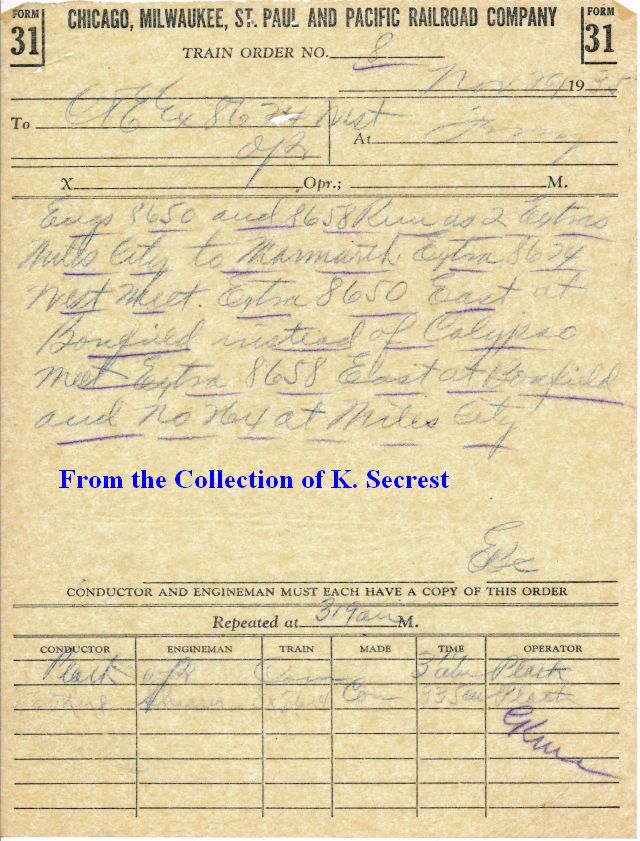 FORM 31
CHICAGO, MILWAUKEE, ST. PAUL AND PACIFIC RAILROAD COMPANY
FORM 31
TRAIN ORDER NO. 8
Nov 29 1935
To C+E Ex 8624 West
At
Opr
X Opr.; M.
Engs 8650 and 8658 Run as 2 Extras
Miles City to Marmarth. Extra 8624
West Meet. Extra 8650 East at
Bonfield instead of Calypso
Meet Extra 8658 East at Bonfield
and No 264 at Miles City
From the Collection of K. Secrest
CONDUCTOR AND ENGINEMAN MUST EACH HAVE A COPY OF THIS ORDER
Repeated at 319am M.
CONDUCTOR ENGINEMAN TRAIN MADE TIME OPERATOR
Plack Opr Com Plack
Ex 8624 Com 335am Plack